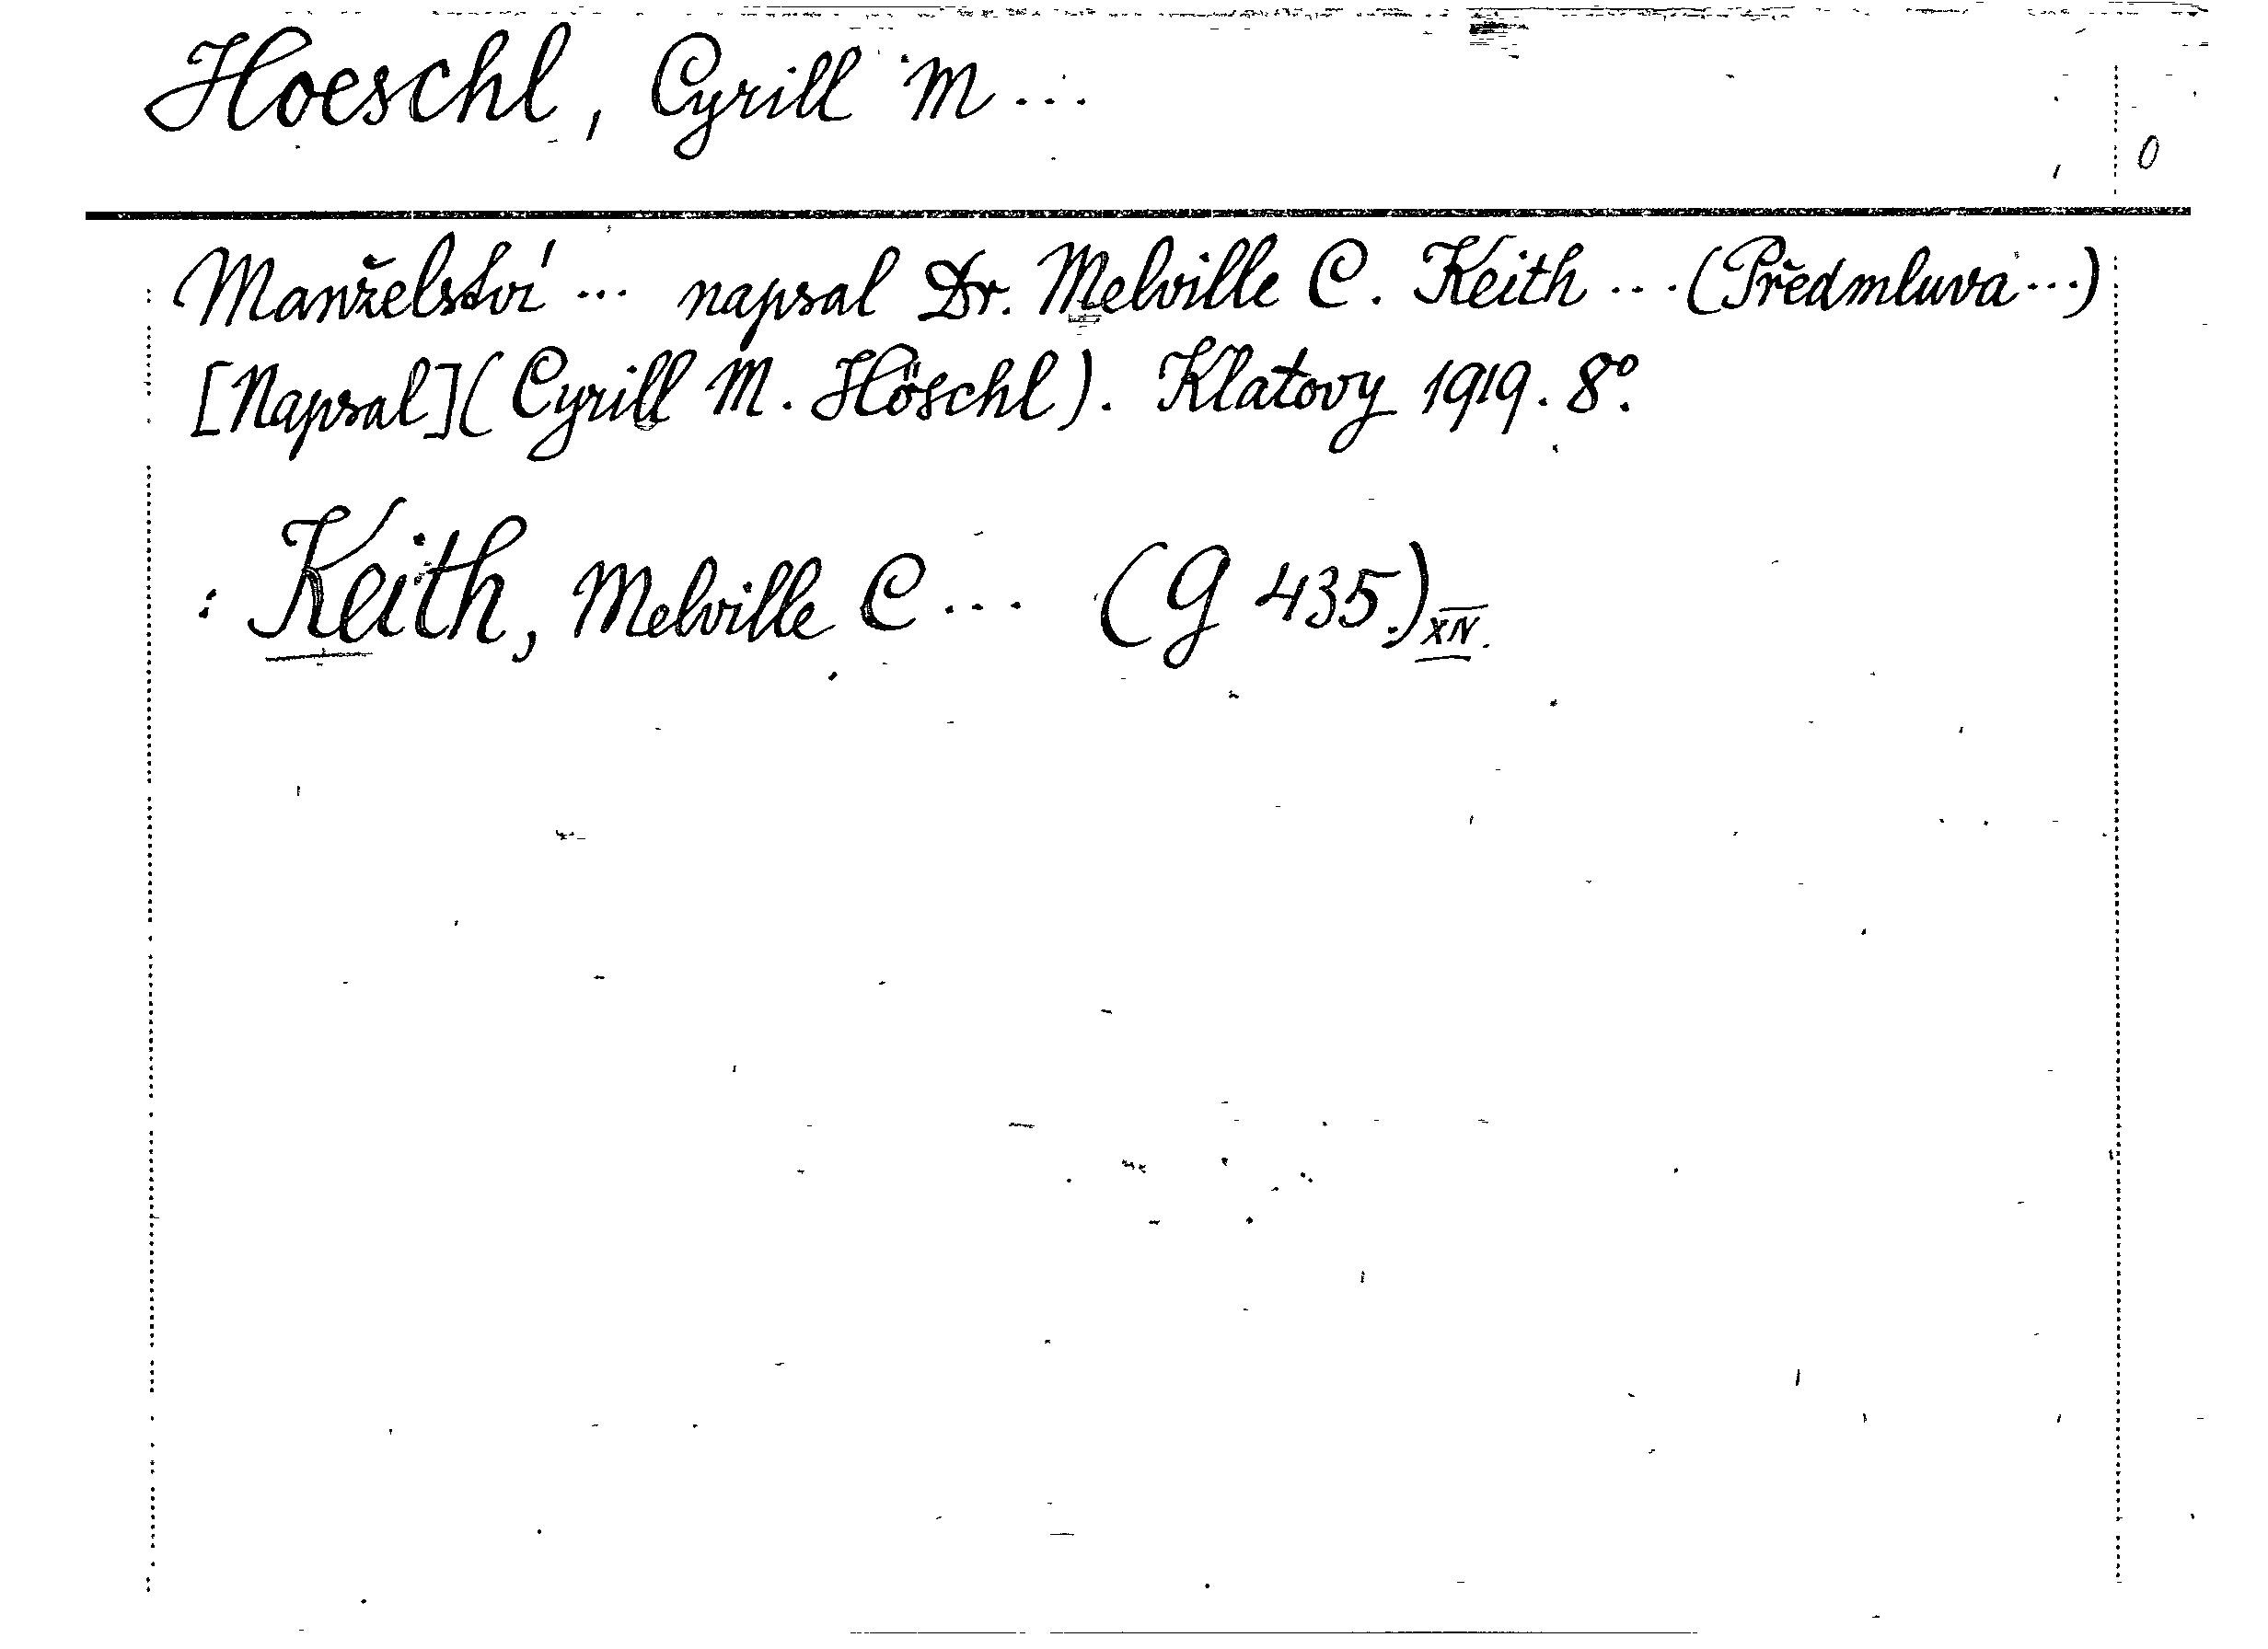 Hoeschl, Cyrill M...
0
Manželství ... napsal Dr. Melville C. Keith ... (Předmluva ...)
[Napsal] (Cyrill M. Höschl). Klatovy 1919. 8°.
: Keith, Melville C ... (G 435.) XIV.